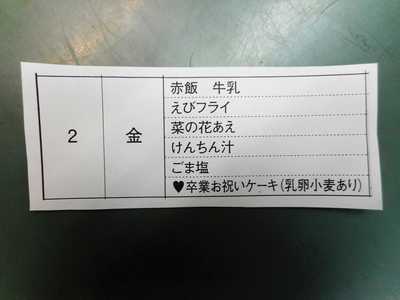 2
金
赤飯　牛乳
えびフライ
菜の花あえ
けんちん汁
ごま塩
♥卒業お祝いケーキ(乳卵小麦あり)